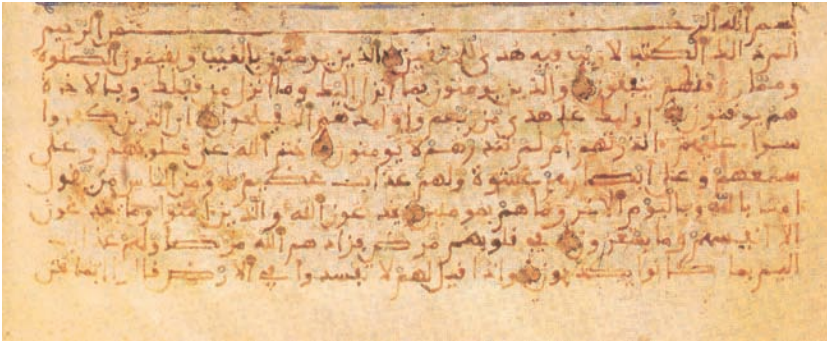 بسم الله الرحمن الرحيم
الم ذلك الكتب لا ريب فيه هدى للمتقين الذين يومنون بالغيب ويقيمون الصلوة
ومما رزقنهم ينفقون والذين يومنون بما أنزل اليك وما أنزل من قبلك وبالاخرة
هم يوقنون اوليك على هدى من ربهم واوليك هم المفلحون ان الذين كفروا
سواء عليهم ءانذرتهم أم لم تنذرهم لا يومنون ختم الله على قلوبهم وعلى
سمعهم وعلى ابصرهم غشوة ولهم عذاب عظيم ومن الناس من يقول
امنا بالله وباليوم الاخر وما هم بمومنين يخدعون الله والذين امنوا وما يخدعون
الا انفسهم وما يشعرون في قلوبهم مرض فزادهم الله مرضا ولهم عذاب
اليم بما كانوا يكذبون واذا قيل لهم لا تفسدوا في الارض قالوا انما نحن